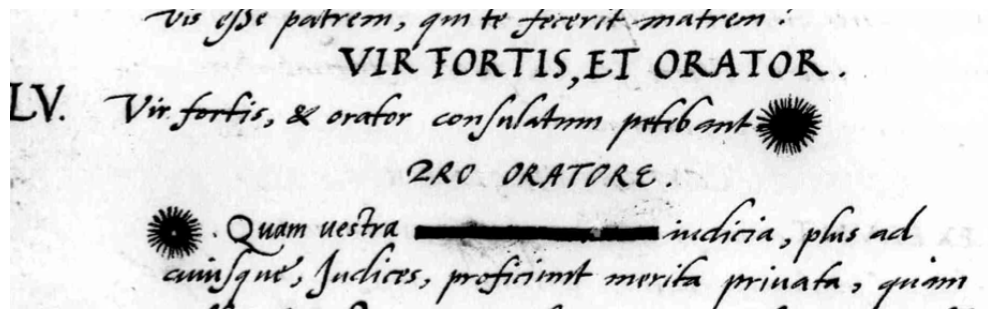 Vis esse patrem, qui te fecerit matrem?
VIR FORTIS, ET ORATOR.
LV. Vir fortis, & orator consulatum petebant
PRO ORATORE.
. Quam vestra iudicia, plus ad
cuiusque, Iudices, proficiunt merita privata, quam